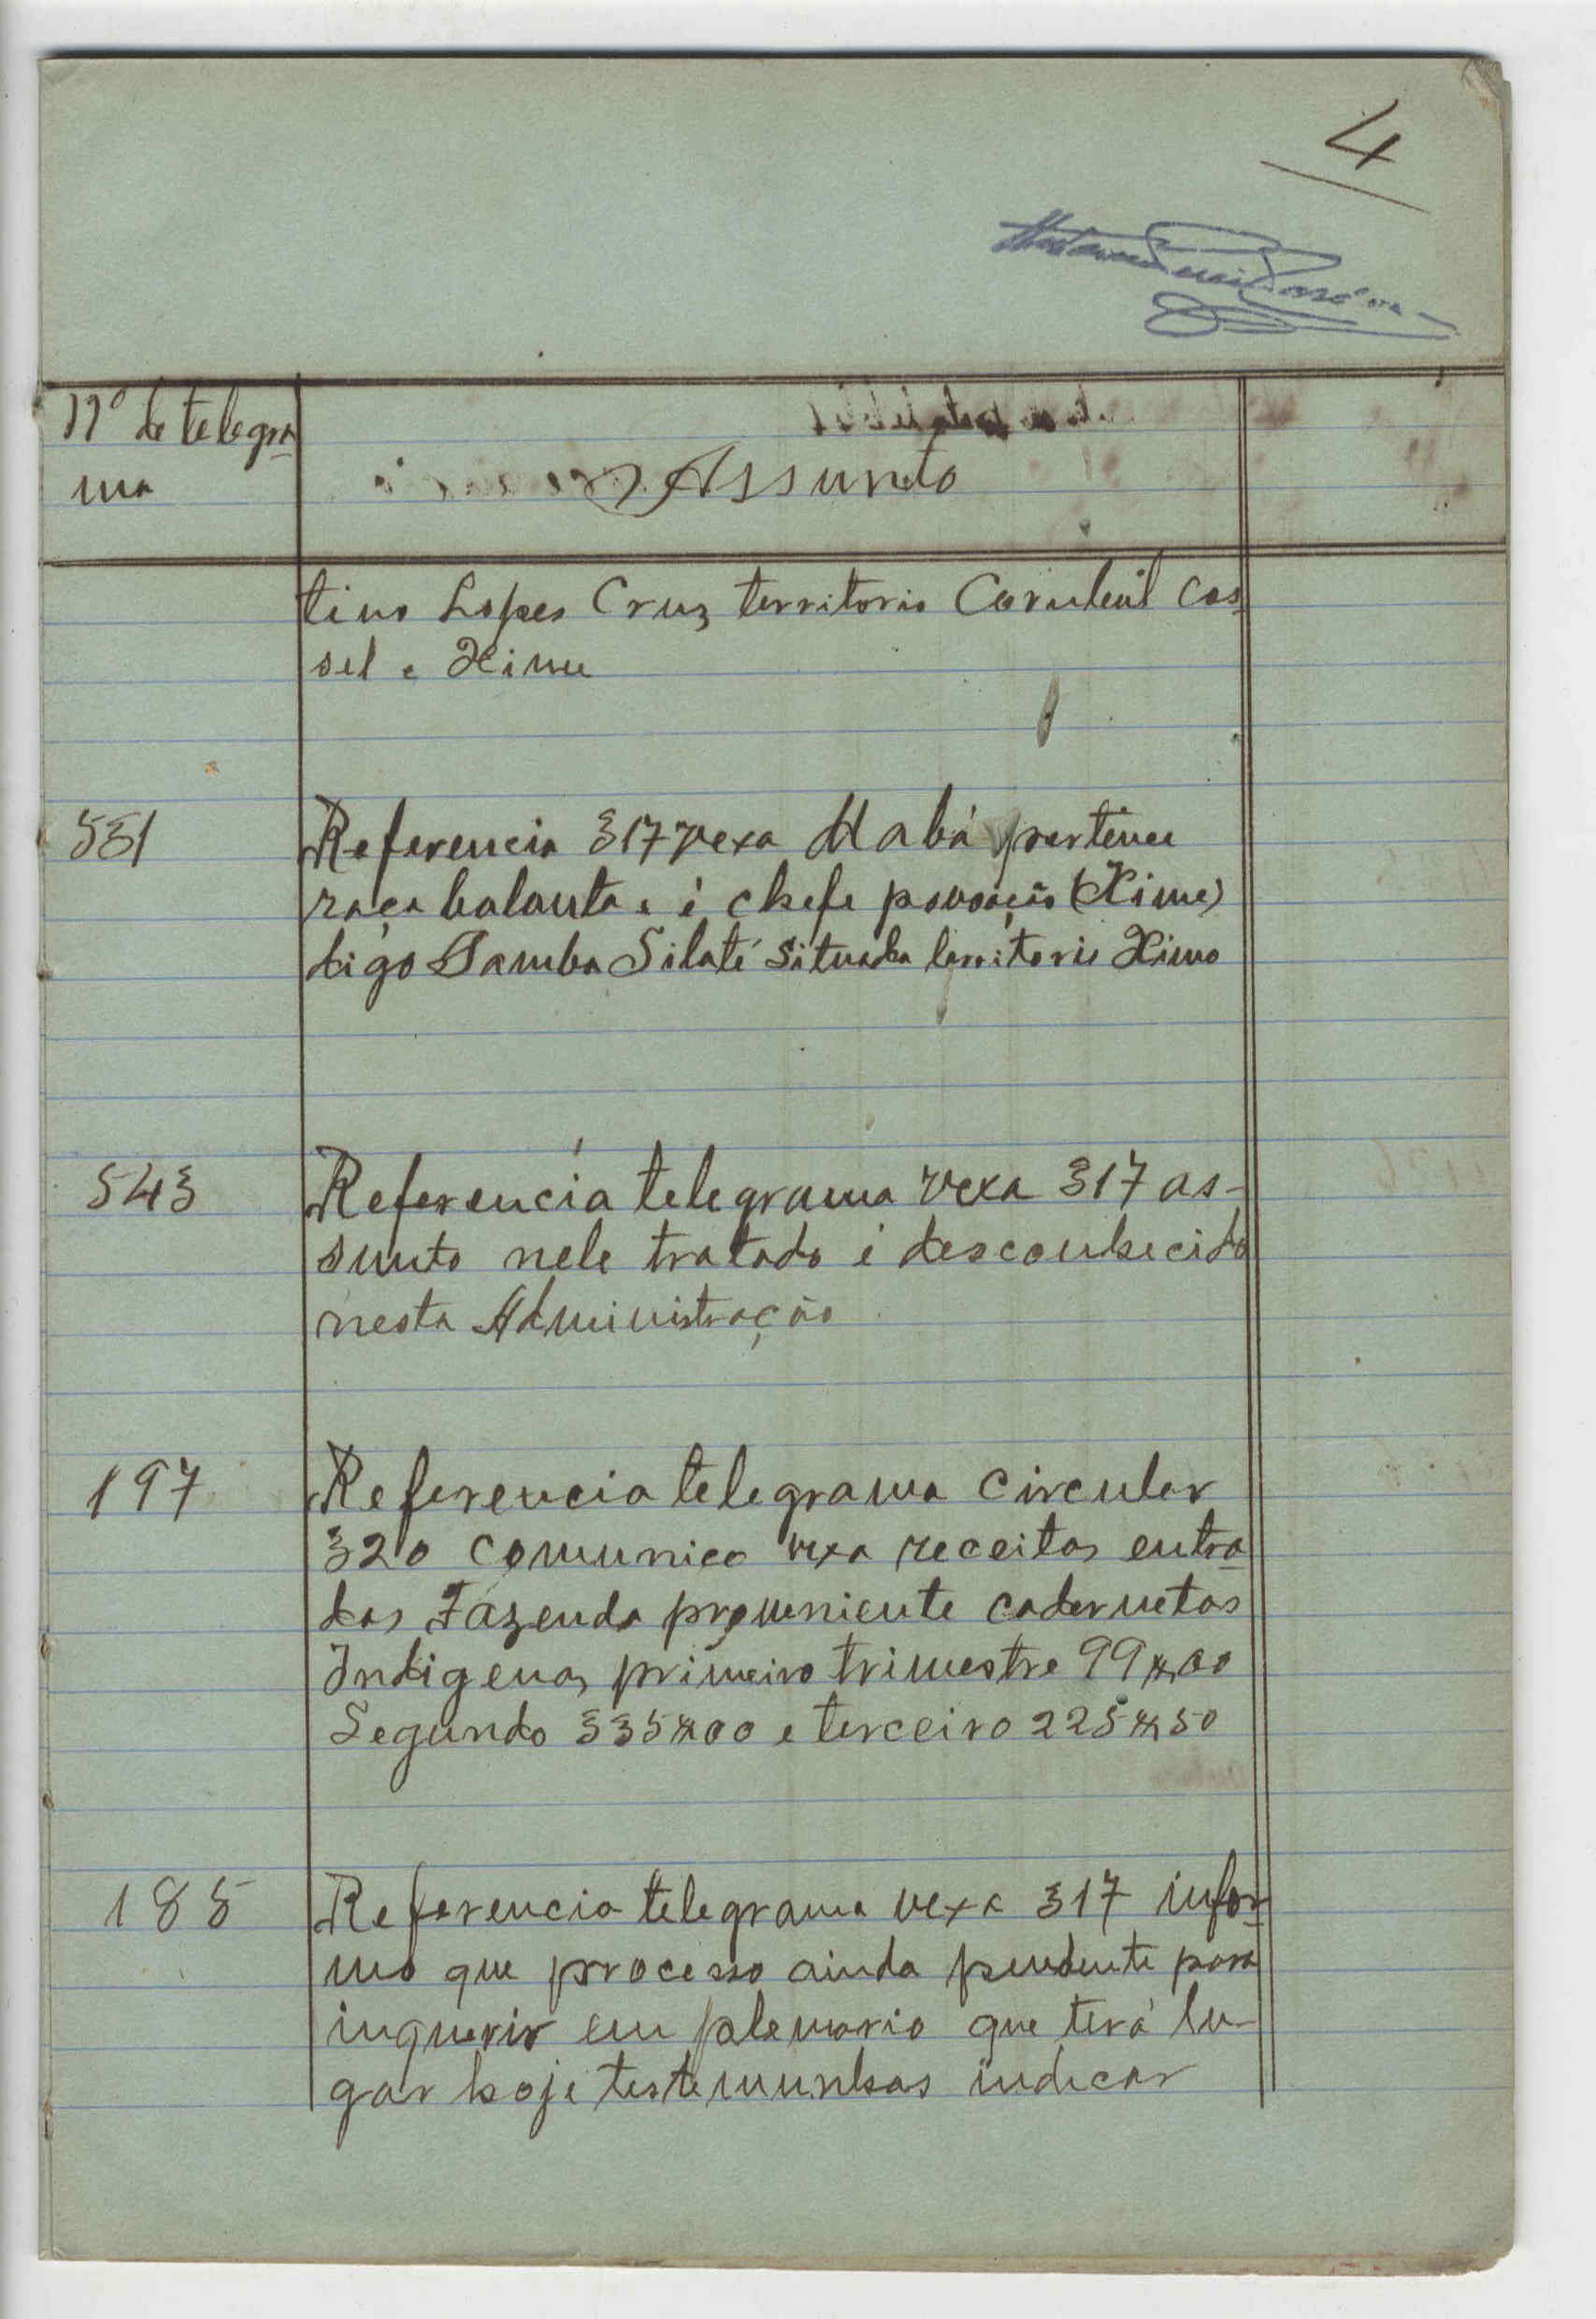 4
Nº de telegra
ma
Assunto
tino Lopes Cruz territorio Corubal Cos
sel e Xime
531
Referencia 317 vexa Mabá pertence
raça balanta e é chefe povoação (Xime)
digo Samba Silaté situada territorio Xime
543
Referencia telegrama vexa 317 as-
sunto nele tratado é desconhecido
nesta Administração
197
Referencia telegrama circular
320 comunico vexa receitas entra
das Fazenda proveniente cadernetas
Indigenas primeiro trimestre 99$00
Segundo 335$00 e terceiro 225$50
185
Referencia telegrama vexa 317 infor-
mo que processo ainda pendente para
inquerir em plenario que terá lu-
gar hoje testemunhas indicar